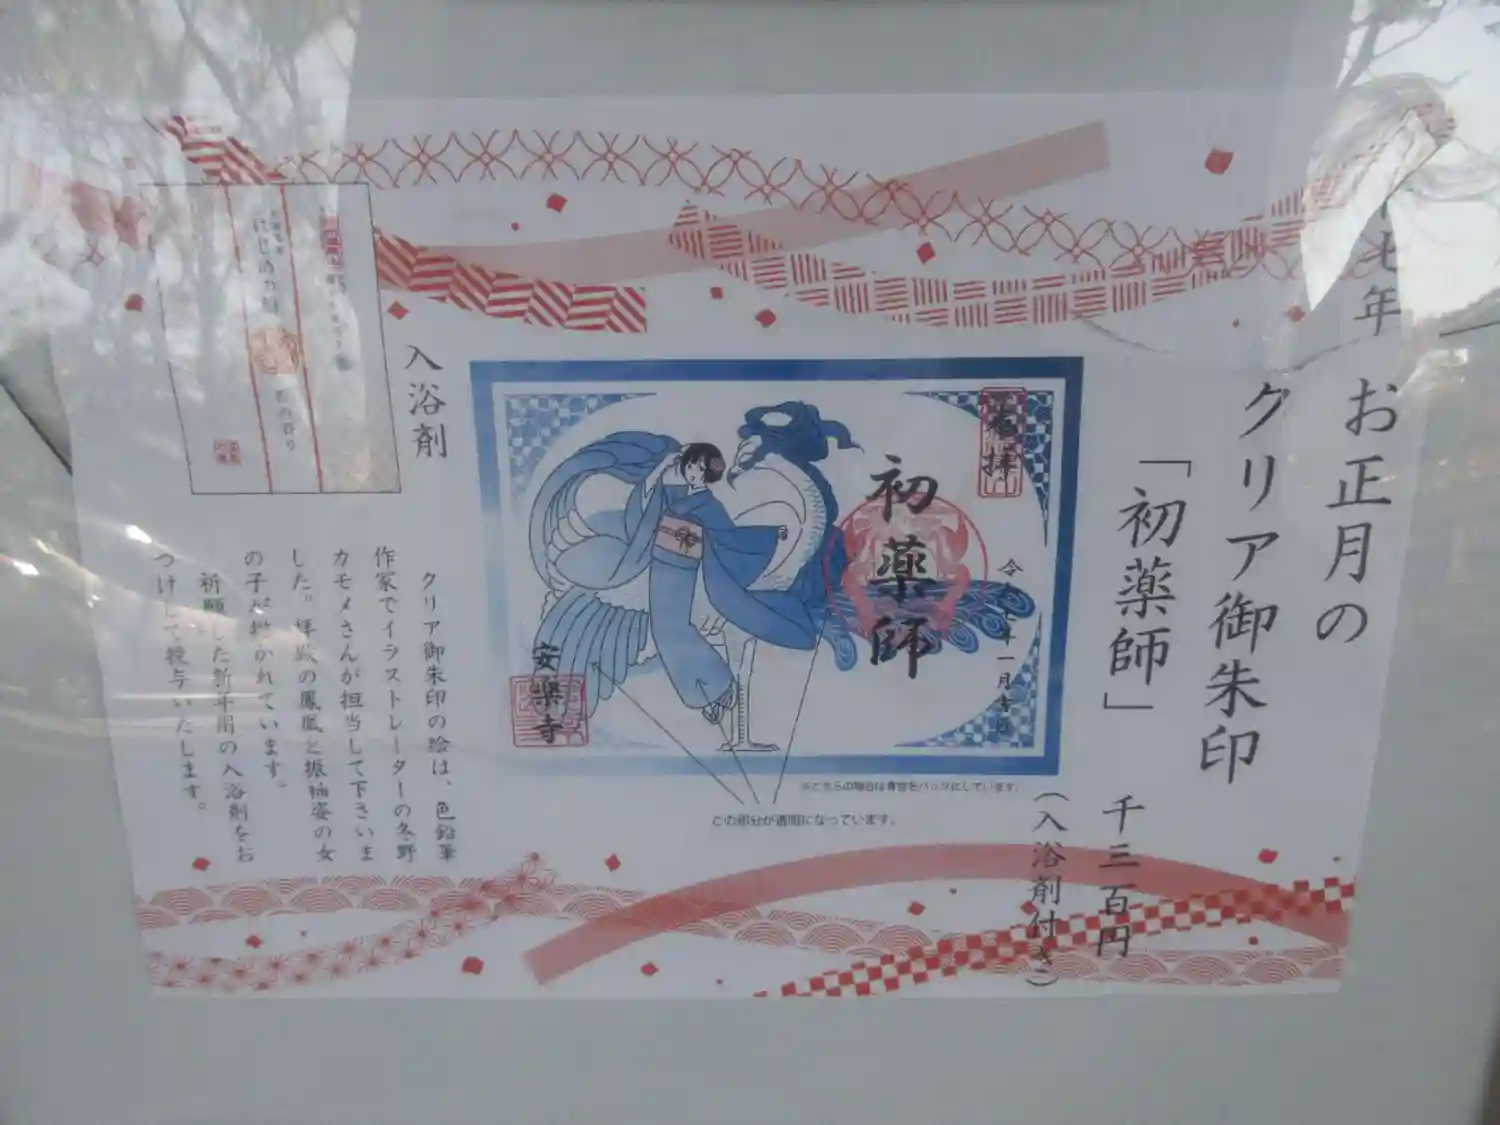 七年
お正月の
クリア御朱印
「初薬師」
千三百円
(入浴剤付き)
奉拝
年一月吉日
初薬師
安楽寺
※こちらの場合は青空をバックにしています。
この部分が透明になっています。
入浴剤
クリア御朱印の絵は、色鉛筆
作家でイラストレーターの冬野
カモメさんが担当して下さいま
した。拝殿の鳳凰と振袖姿の女
の子が描かれています。
祈願した新年用の入浴剤をお
つけして授与いたします。
の香り